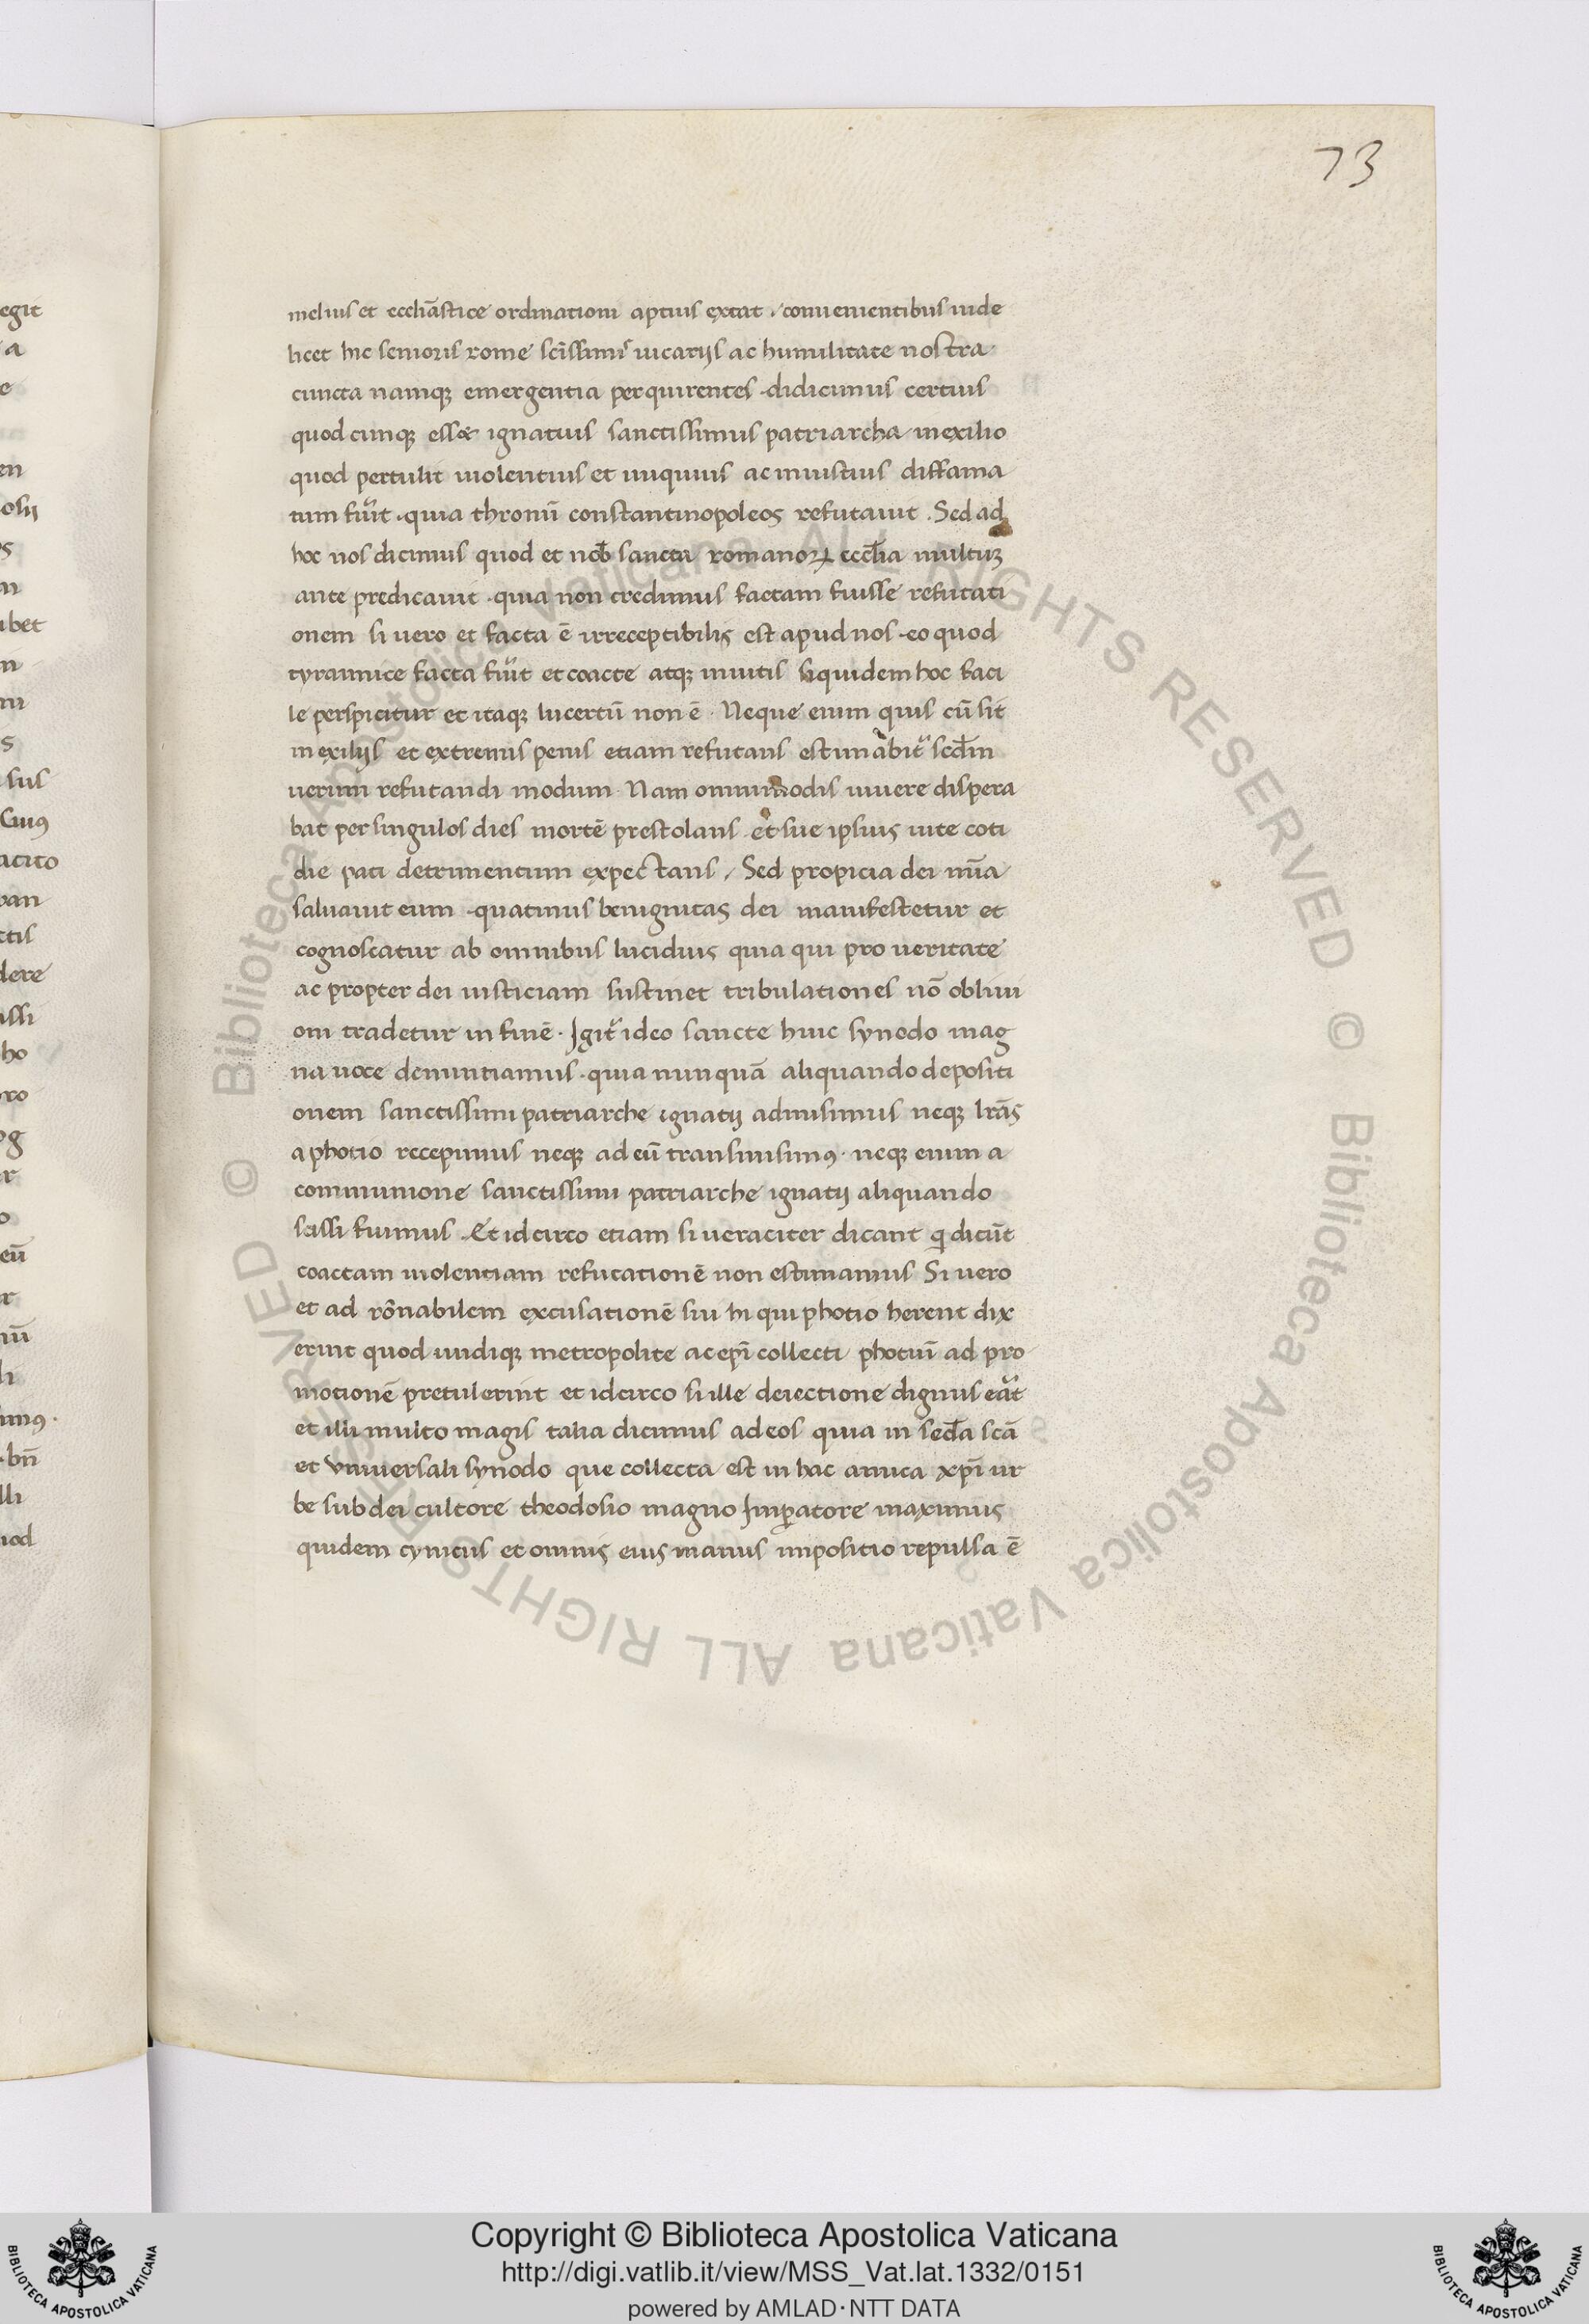 73
melius et eccliāstice ordinationi aptius extat · conuenientibus uide
licet hic senioris rome scīssimis uicarijs ac humilitate nostra
cuncta namqꝫ emergentia perquirentes · didicimus certius
quodcunqꝫ esset ignatius sanctissimus patriarcha in exilio
quod pertulit uiolentius et iniquius ac iniustius diffama
tum fuit · quia thronū constantinopoleos refutauit . Sed ad
hoc nos dicimus quod et nob̄ sancta romanoꝝ eccl̄ia multuꝫ
ante predicauit · quia non credimus factam fuisse refutati
onem si uero et facta ē irreceptibilis est apud nos · eo quod
tyrannice facta fuit et coacte atqꝫ inuitis siquidem hoc faci
le perspicitur et itaqꝫ incertū non ē · Neque enim quis cū sit
in exilijs et extremis penis etiam refutans estimabitr scd̄m
uerum refutandi modum · Nam omnimodis uiuere dispera
bat per singulos dies mortē prestolans · et sue ipsius uite coti
die pati detrimentum expectans , Sed propicia dei mīa
saluauit eum · quatinus benignitas dei manifestetur et
cognoscatur ab omnibus lucidius quia qui pro ueritate
ac propter dei iusticiam sustinet tribulationes nō obliui
oni tradetur in finē · Igitr ideo sancte huic synodo mag
na uoce denuntiamus · quia nunquā aliquando depositi
onem sanctissimi patriarche ignatij admisimus neqꝫ lr̄as
a photio recepimus neqꝫ ad eū transmisimꝰ · neqꝫ enim a
communione sanctissimi patriarche ignatij aliquando
scissi fuimus . Et idcirco etiam si ueraciter dicant qi dicūt
coactam uiolentiam refutationē non estimamus Si uero
et ad rōnabilem excusationē siu hi qui photio herent dix
erint quod undiqꝫ metropolite ac epī collecti photiū ad pro
motionē pretulerint et idcirco si ille deiectione dignus erat
et illi multo magis talia dicimus ad eos quia in secd̄a scā
et vniuersali synodo que collecta est in hac amica xp̄i ur
be sub dei cultore theodosio magno Imꝑatore maximus
quidem cynicus et omnis eius manus impositio repulsa ē
Copyright © Biblioteca Apostolica Vaticana
http://digi.vatlib.it/view/MSS_Vat.lat.1332/0151
powered by AMLAD·NTT DATA